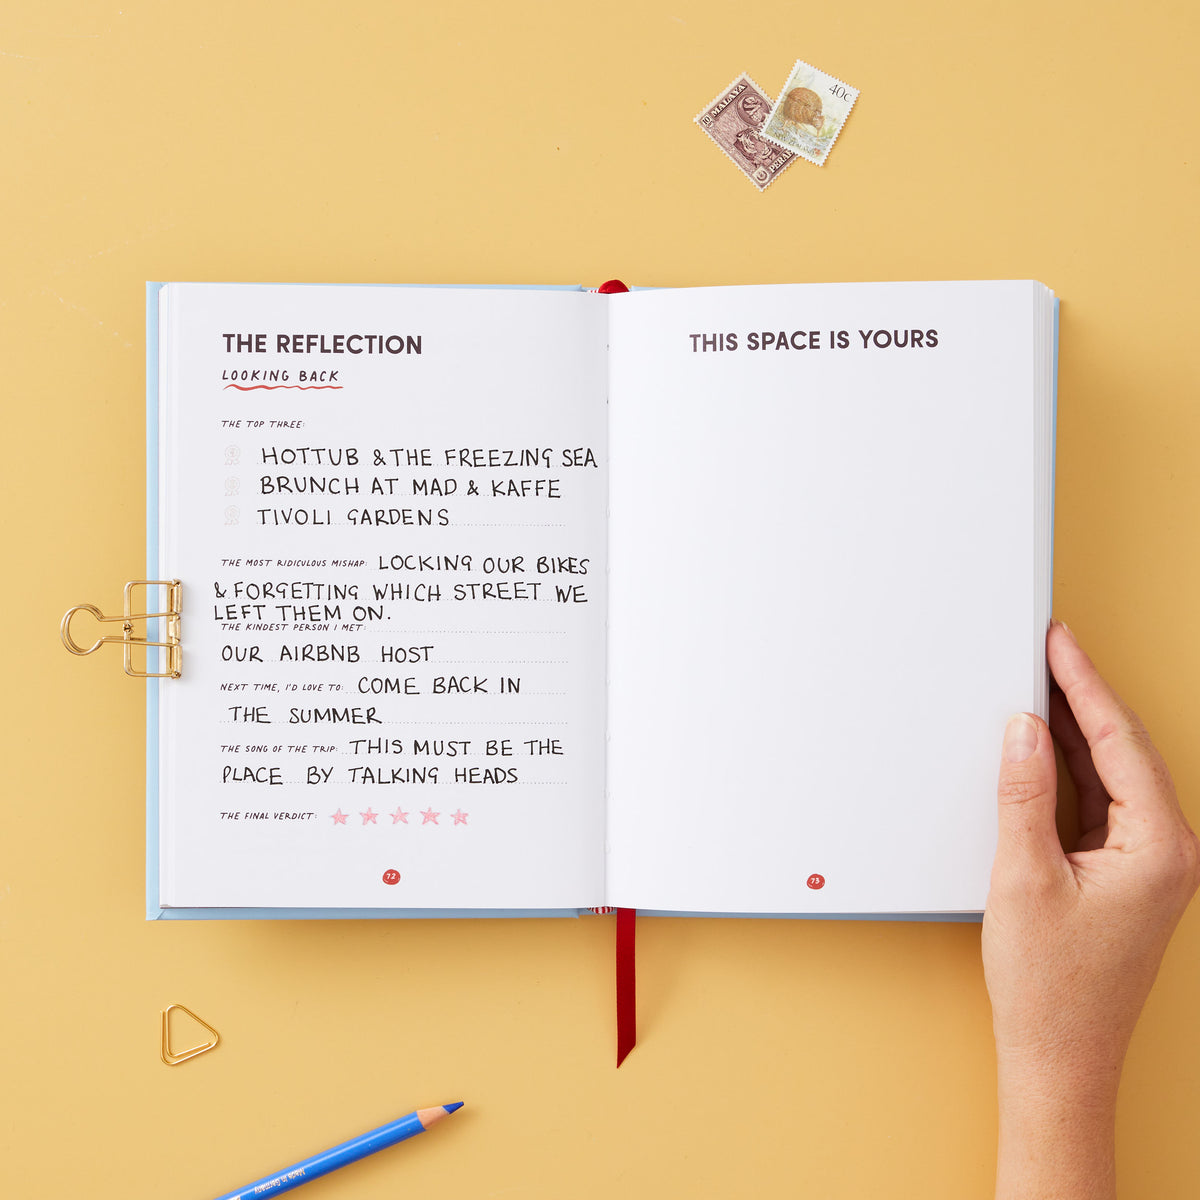 MALAYA
10
PERAK
40c
NEW ZEALAND
THE REFLECTION
LOOKING BACK
THE TOP THREE:
HOTTUB & THE FREEZING SEA
BRUNCH AT MAD & KAFFE
TIVOLI GARDENS
THE MOST RIDICULOUS MISHAP: LOCKING OUR BIKES
& FORGETTING WHICH STREET WE
LEFT THEM ON.
THE KINDEST PERSON I MET:
OUR AIRBNB HOST
NEXT TIME, I'D LOVE TO: COME BACK IN
THE SUMMER
THE SONG OF THE TRIP: THIS MUST BE THE
PLACE BY TALKING HEADS
THE FINAL VERDICT:
72
THIS SPACE IS YOURS
73
Made in Germany